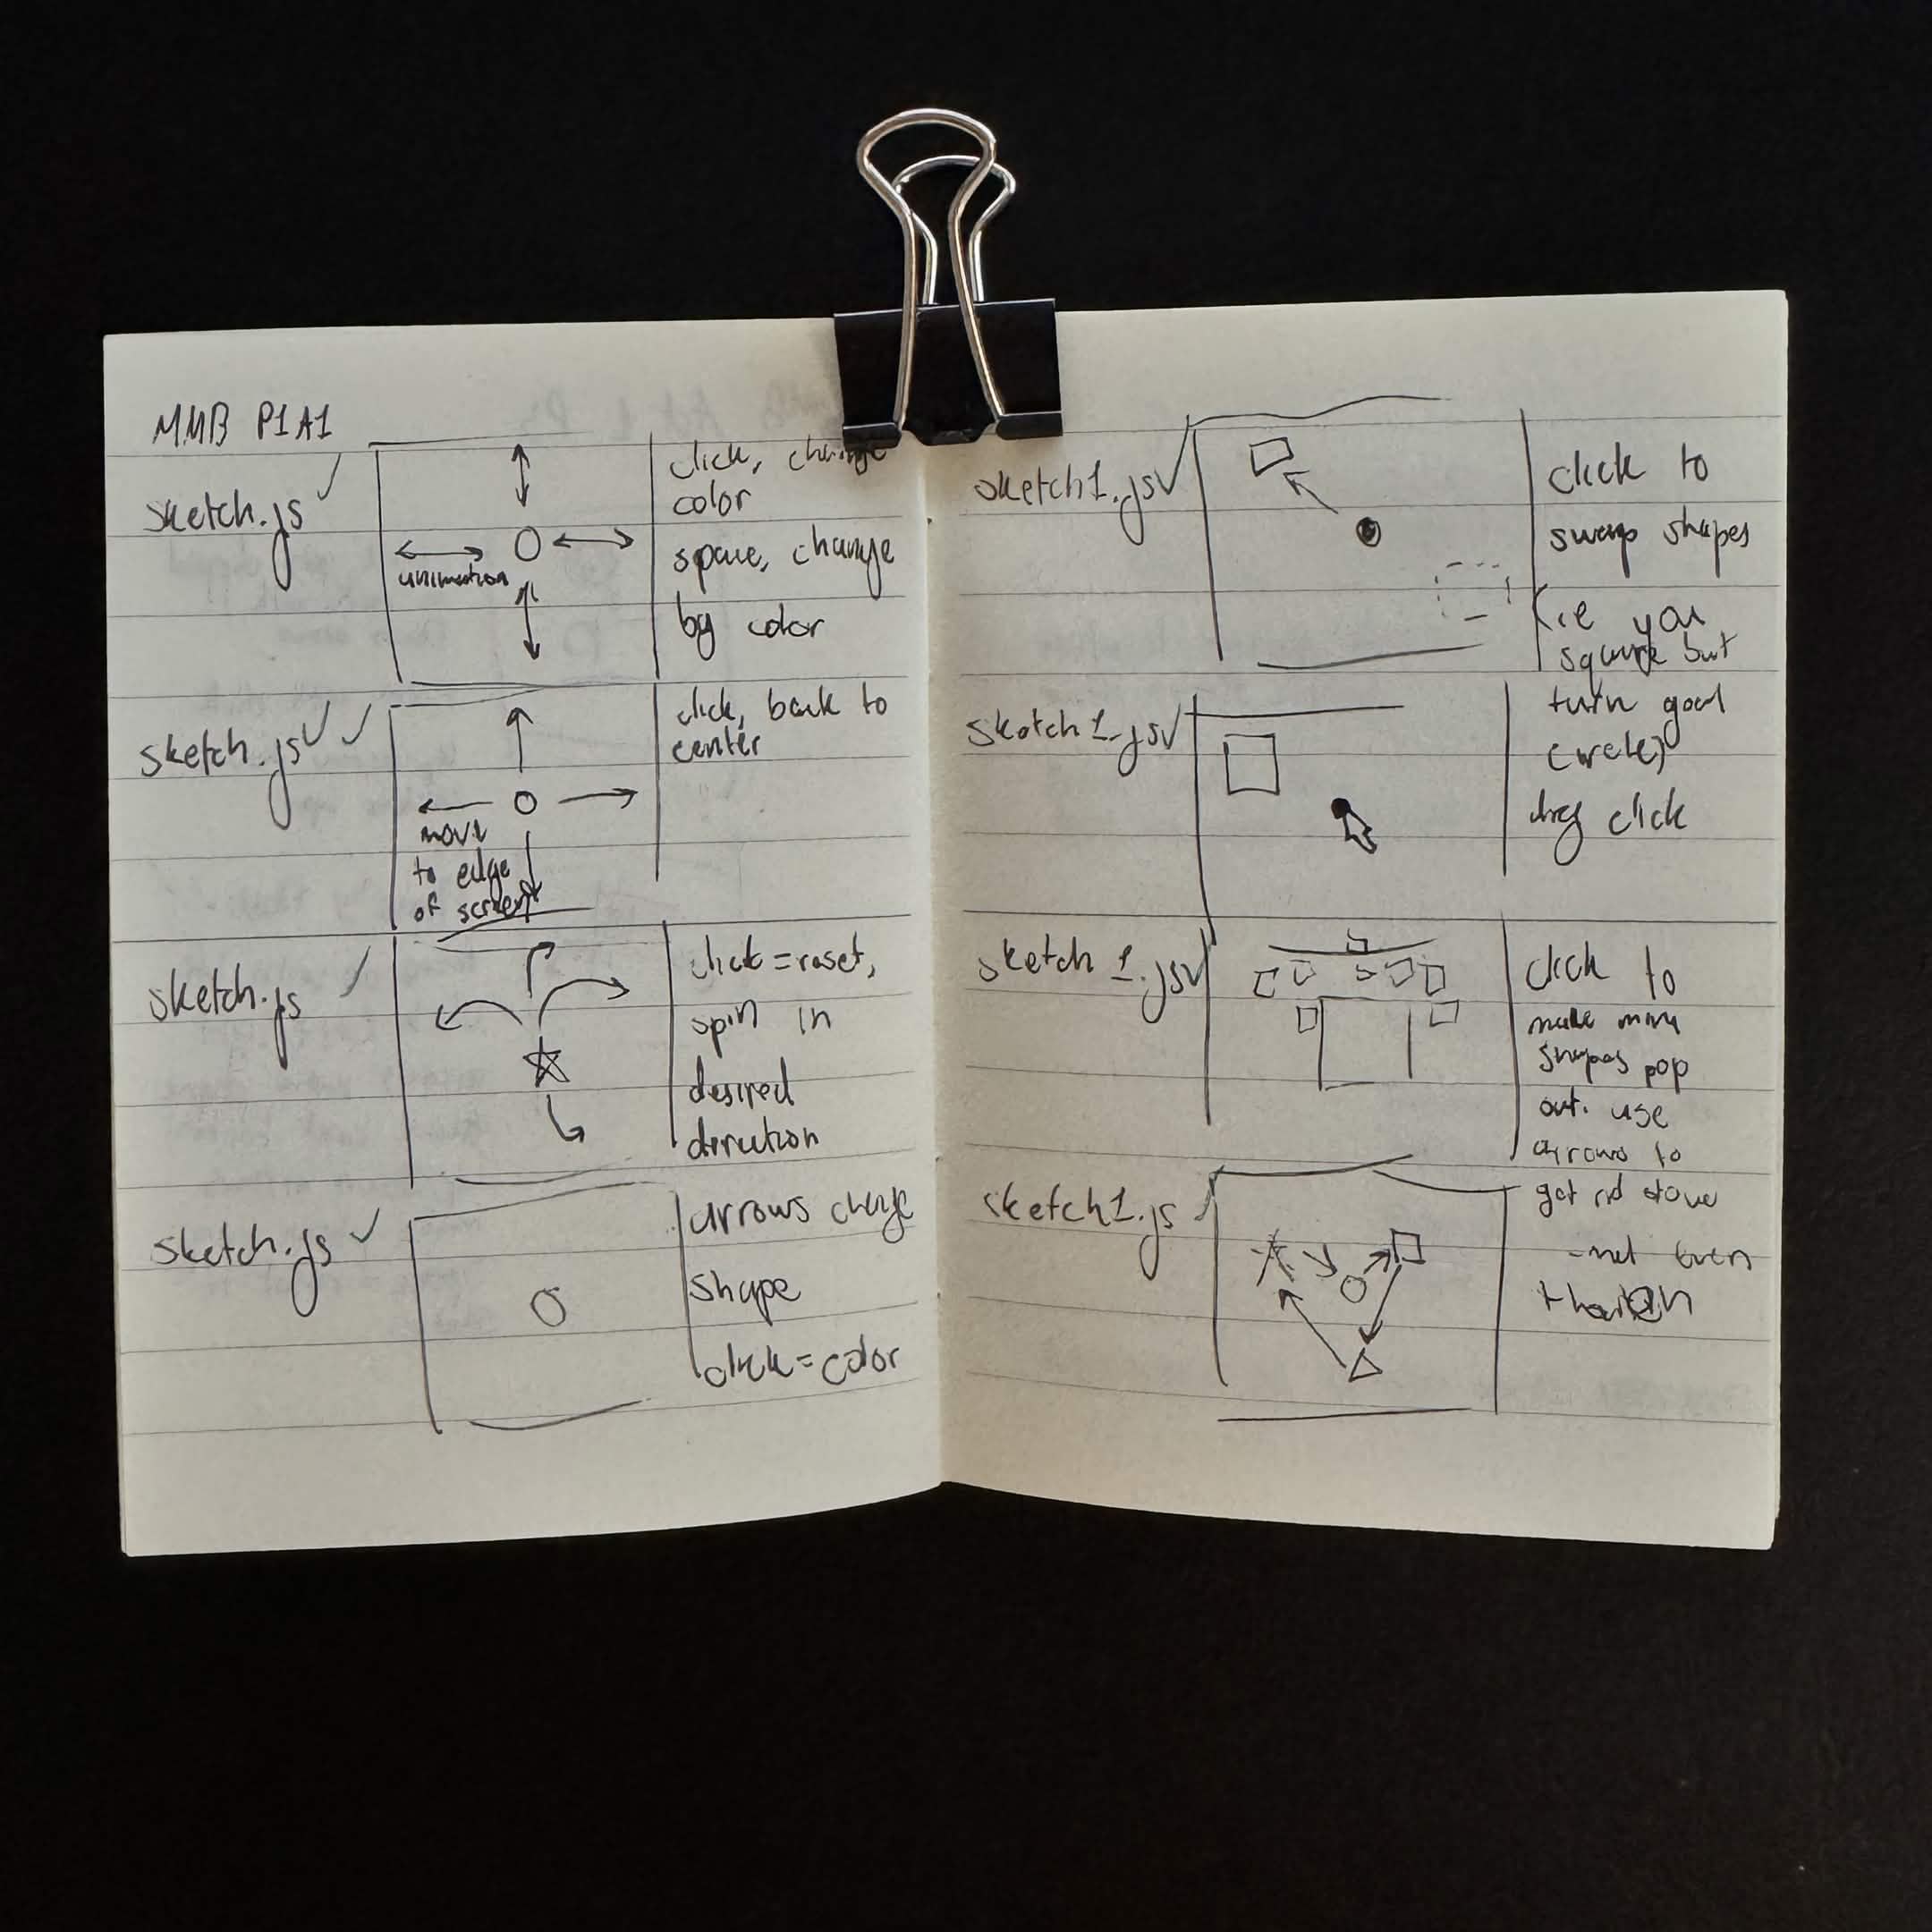 MMB P1A1
sketch.js
animation
click, change
color
space, change
by color
sketch.js
move
to edge
of screen
click, back to
center
sketch.js
click = reset,
spin in
desired
direction
sketch.js
arrows change
shape
click = color
sketch1.js
click to
swap shapes
(ie you
square but
turn goal
circle)
sketch1.js
drag click
sketch 1.js
click to
make mini
shapes pop
out. use
arrows to
get rid
sketch1.js